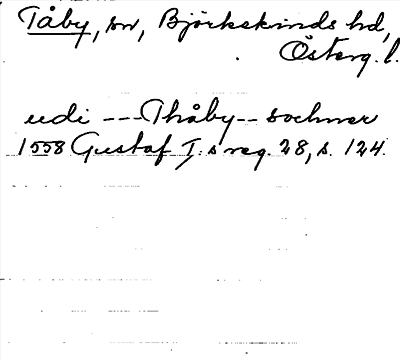 Tåby, sn, Björkekinds hd,
Österg. l.
udi --- Thåby -- sochner
1558 Gustaf I:s reg. 28, s. 124.